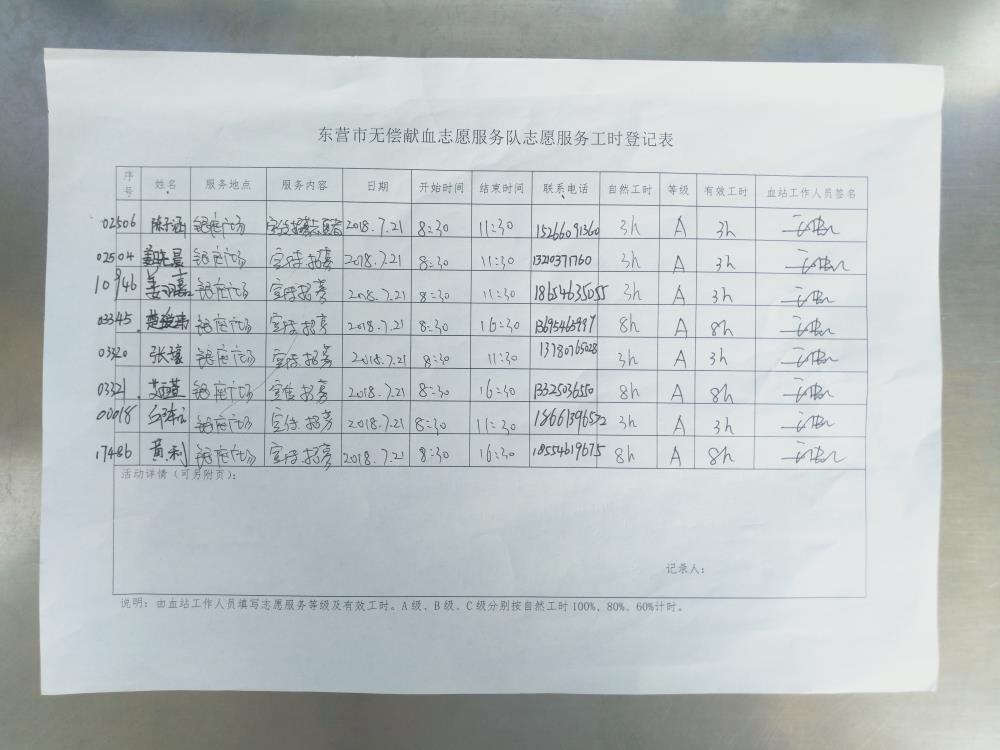 东营市无偿献血志愿服务队志愿服务工时登记表
序号 姓名 服务地点 服务内容 日期 开始时间 结束时间 联系电话 自然工时 等级 有效工时 血站工作人员签名
02506 银座广场 宣传招募志愿者 2018.7.21 8:30 11:30 15266091360 3h A 3h
02504 银座广场 宣传招募 2018.7.21 8:30 11:30 13210371760 3h A 3h
10946 银座广场 宣传招募 2018.7.21 8:30 11:30 18654635055 3h A 3h
03345 银座广场 宣传招募 2018.7.21 8:30 16:30 13695465997 8h A 8h
03320 张璟 银座广场 宣传招募 2018.7.21 8:30 11:30 13780765028 3h A 3h
03321 银座广场 宣传招募 2018.7.21 8:30 16:30 13325036550 8h A 8h
00018 银座广场 宣传招募 2018.7.21 8:30 11:30 18661396572 3h A 3h
17486 黄利 银座广场 宣传招募 2018.7.21 8:30 16:30 18554619675 8h A 8h
活动详情(可另附页):
记录人:
说明:由血站工作人员填写志愿服务等级及有效工时。A级、B级、C级分别按自然工时100%、80%、60%计时。